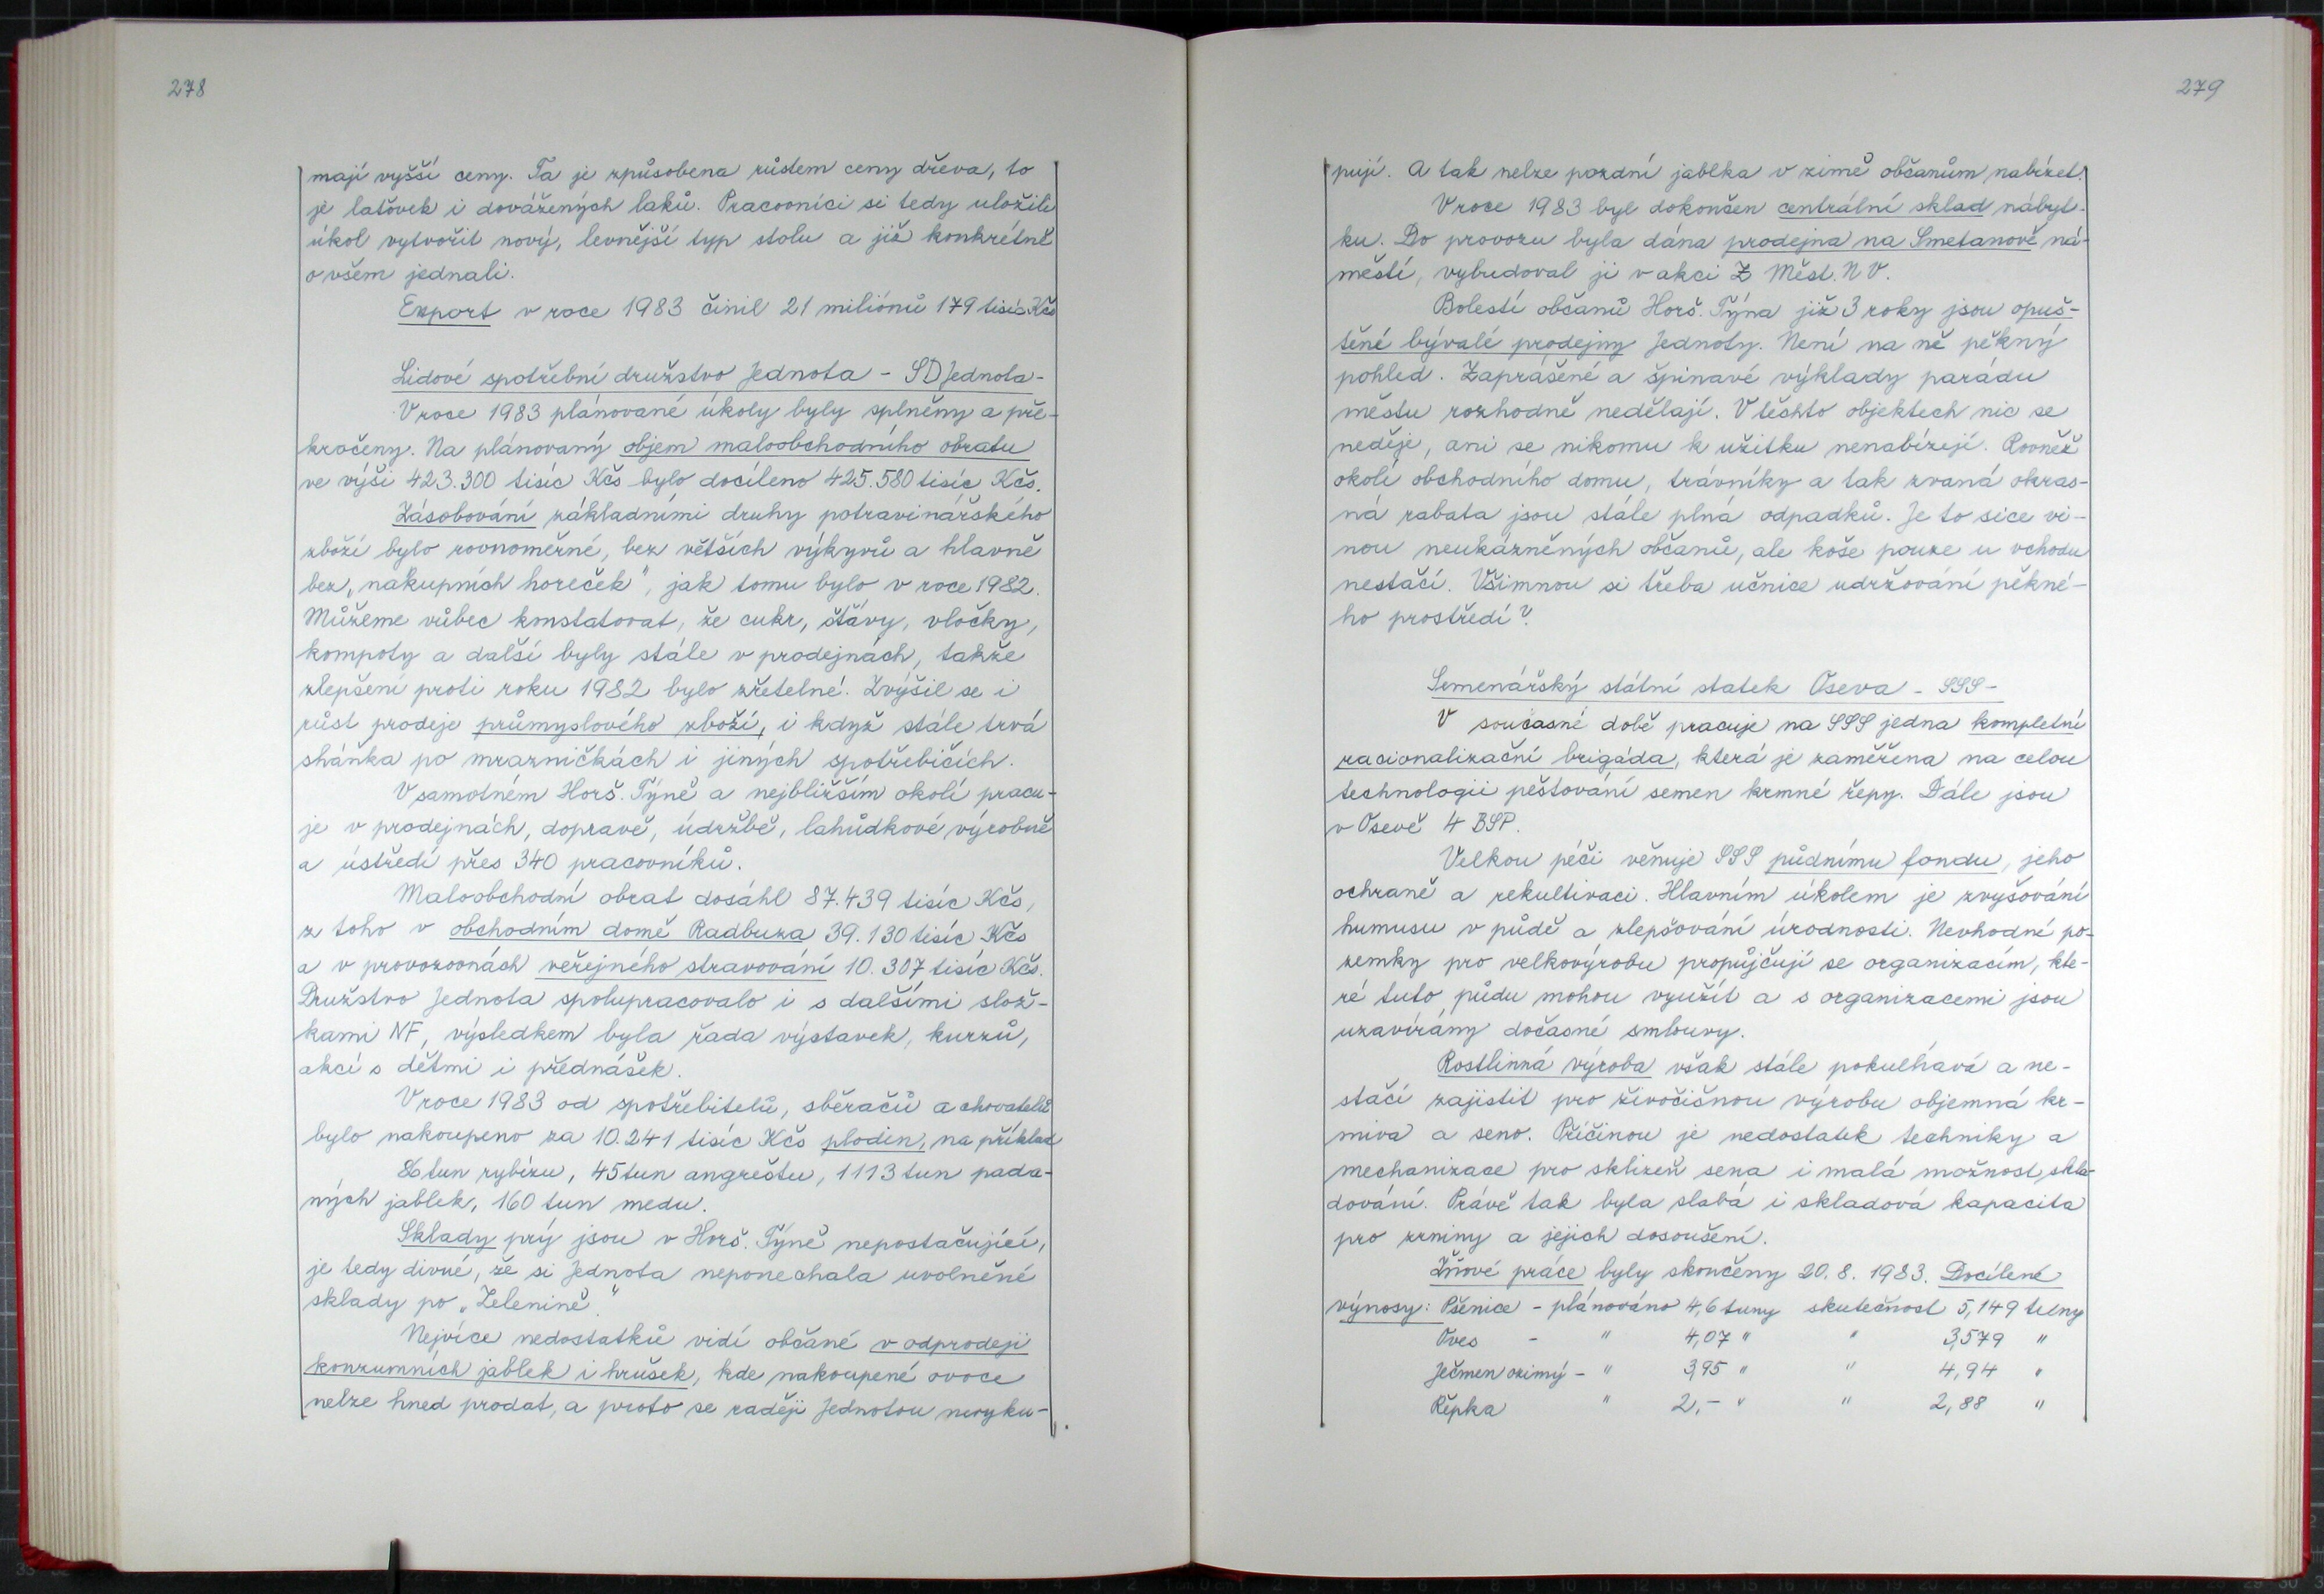 278
mají vyšší ceny. Ta je způsobena růstem ceny dřeva, to
je laťovek i dovážených laků. Pracovníci si tedy uložili
úkol vytvořit nový, levnější typ stolu a již konkrétně
o všem jednali.
Export v roce 1983 činil 21 miliónů 179 tisíc Kčs
Lidové spotřební družstvo Jednota - SD Jednota -
V roce 1983 plánované úkoly byly splněny a pře-
kročeny. Na plánovaný objem maloobchodního obratu
ve výši 423.300 tisíc Kčs bylo docíleno 425.580 tisíc Kčs.
Zásobování základními druhy potravinářského
zboží bylo rovnoměrné, bez větších výkyvů a hlavně
bez „nákupních horeček", jak tomu bylo v roce 1982.
Můžeme vůbec konstatovat, že cukr, šťávy, vločky,
kompoty a další byly stále v prodejnách, takže
zlepšení proti roku 1982 bylo zřetelné. Zvýšil se i
růst prodeje průmyslového zboží, i když stále trvá
sháňka po mrazničkách i jiných spotřebičích.
V samotném Horš. Týně a nejbližším okolí pracu-
je v prodejnách, dopravě, údržbě, lahůdkové výrobně
a ústředí přes 340 pracovníků.
Maloobchodní obrat dosáhl 87.439 tisíc Kčs,
z toho v obchodním domě Radbuza 39.130 tisíc Kčs
a v provozovnách veřejného stravování 10.307 tisíc Kčs.
Družstvo Jednota spolupracovalo i s dalšími slož-
kami NF, výsledkem byla řada výstavek, kurzů,
akcí s dětmi i přednášek.
V roce 1983 od spotřebitelů, sběračů a chovatelů
bylo nakoupeno za 10.241 tisíc Kčs plodin, na příklad
86 tun rybízu, 45 tun angreštu, 1113 tun pada-
ných jablek, 160 tun medu.
Sklady prý jsou v Horš. Týně nepostačující,
je tedy divné, že si Jednota neponechala uvolněné
sklady po „Zelenině."
Nejvíce nedostatků vidí občané v odprodeji
konzumních jablek i hrušek, kde nakoupené ovoce
nelze hned prodat, a proto se raději Jednotou nevyku-
279
pují. A tak nelze pozdní jablka v zimě občanům nabízet.
V roce 1983 byl dokončen centrální sklad nábyt-
ku. Do provozu byla dána prodejna na Smetanově ná-
městí, vybudoval ji v akci Z Měst. N V.
Bolestí občanů Horš. Týna již 3 roky jsou opuš-
těné bývalé prodejny Jednoty. Není na ně pěkný
pohled. Zaprášené a špinavé výklady parádu
městu rozhodně nedělají. V těchto objektech nic se
neděje, ani se nikomu k užitku nenabízejí. Rovněž
okolí obchodního domu, trávníky a tak zvaná okras-
ná rabata jsou stále plná odpadků. Je to sice vi-
nou neukázněných občanů, ale koše pouze u vchodu
nestačí. Všimnou si třeba učnice udržování pěkné-
ho prostředí?
Semenářský státní statek Oseva - SSS -
V současné době pracuje na SSS jedna kompletní
racionalizační brigáda, která je zaměřena na celou
technologii pěstování semen krmné řepy. Dále jsou
v Osevě 4 BSP.
Velkou péči věnuje SSS půdnímu fondu, jeho
ochraně a rekultivaci. Hlavním úkolem je zvyšování
humusu v půdě a zlepšování úrodnosti. Nevhodné po-
zemky pro velkovýrobu propůjčují se organizacím, kte-
ré tuto půdu mohou využít a s organizacemi jsou
uzavírány dočasné smlouvy.
Rostlinná výroba však stále pokulhává a ne-
stačí zajistit pro živočišnou výrobu objemná kr-
miva a seno. Příčinou je nedostatek techniky a
mechanizace pro sklizeň sena i malá možnost skla-
dování. Právě tak byla slabá i skladová kapacita
pro zrniny a jejich dosoušení.
Žňové práce byly skončeny 20. 8. 1983. Docílené
výnosy: Pšenice - plánováno 4,6 tuny skutečnost 5,149 tuny
Oves - " 4,07 " " 3,579 "
Ječmen ozimý - " 3,95 " " 4,94 "
Řepka " 2,- " " 2,88 "